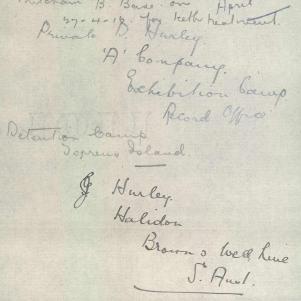 B. Base on April
27-4-17 for teeth treatment.
Private D. Hurley
'A' Company
Exhibition Camp
Record Office
Detention Camp
Torrens Island.
J Hurley.
Halidon
Browns Well Line
Sth Aust.